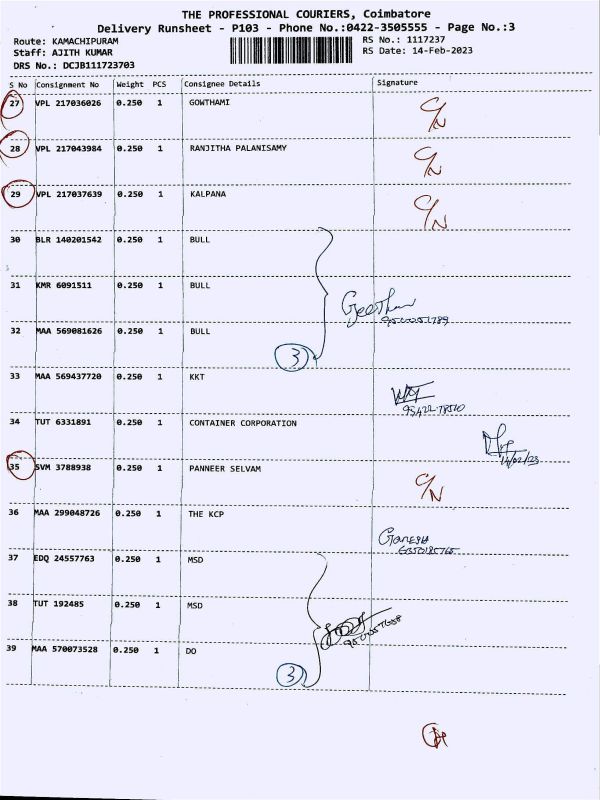 THE PROFESSIONAL COURIERS, Coimbatore
Delivery Runsheet - P103 - Phone No.:0422-3505555 - Page No.:3
Route: KAMACHIPURAM RS No.: 1117237
Staff: AJITH KUMAR RS Date: 14-Feb-2023
DRS No.: DCJB111723703
S No Consignment No Weight PCS Consignee Details Signature
27 VPL 217036026 0.250 1 GOWTHAMI C/N
28 VPL 217043984 0.250 1 RANJITHA PALANISAMY C/N
29 VPL 217037639 0.250 1 KALPANA C/N
30 BLR 140201542 0.250 1 BULL
31 KMR 6091511 0.250 1 BULL
32 MAA 569081626 0.250 1 BULL
3
33 MAA 569437720 0.250 1 KKT
34 TUT 6331891 0.250 1 CONTAINER CORPORATION
14/02/23
35 SVM 3788938 0.250 1 PANNEER SELVAM C/N
36 MAA 299048726 0.250 1 THE KCP
Ganesh
37 EDQ 24557763 0.250 1 MSD
38 TUT 192485 0.250 1 MSD
39 MAA 570073528 0.250 1 DO
3